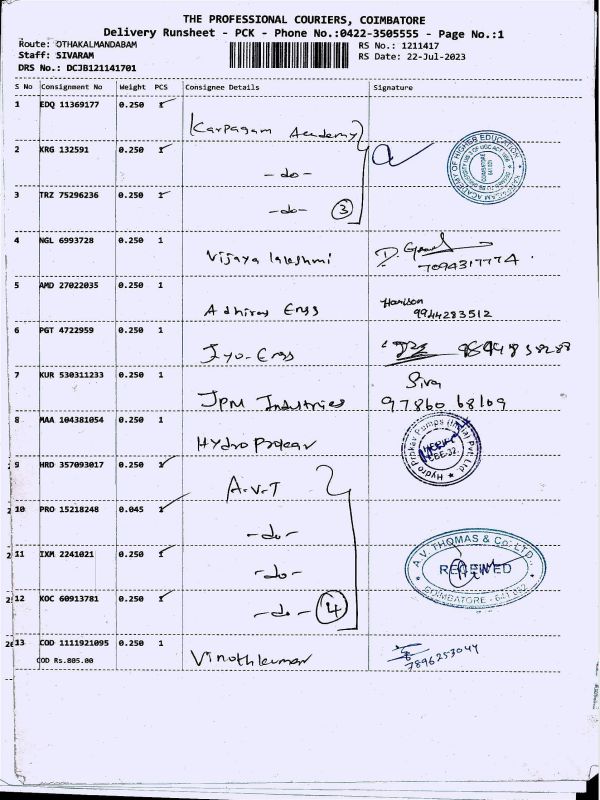 THE PROFESSIONAL COURIERS, COIMBATORE
Delivery Runsheet - PCK - Phone No.:0422-3505555 - Page No.:1
Route: OTHAKALMANDABAM RS No.: 1211417
Staff: SIVARAM RS Date: 22-Jul-2023
DRS No.: DCJB121141701
S No Consignment No Weight PCS Consignee Details Signature
1 EDQ 11369177 0.250 1
Karpagam Academy
2 KRG 132591 0.250 1
-do-
KARPAGAM ACADEMY OF HIGHER EDUCATION
COIMBATORE
3 TRZ 75296236 0.250 1
-do- 3
4 NGL 6993728 0.250 1
Vijaya lakshmi
7094317774.
5 AMD 27022035 0.250 1
Adhiraj Engg
Harison
9944283512
6 PGT 4722959 0.250 1
Jyo-Engg
7 KUR 530311233 0.250 1
JPM Industries
Siva
97860 68109
8 MAA 104381054 0.250 1
Hydro Prokav
Hydro Prokav Pumps (India) Pvt. Ltd
CBE-32.
9 HRD 357093017 0.250 1
A.V.T
10 PRO 15218248 0.045 1
-do-
11 IXM 2241021 0.250 1
-do-
A.V. THOMAS & Co. LTD.,
RECEIVED
COIMBATORE - 641 032
12 KOC 60913781 0.250 1
-do- 4
13 COD 1111921095 0.250 1
COD Rs.805.00
Vinothkumar
7896253044